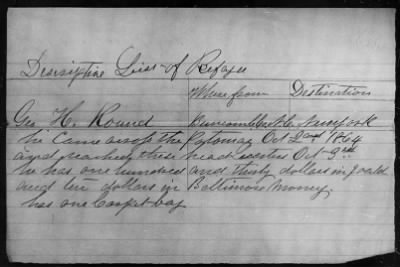 Descriptive List of Refugee
Where from Destination
Geo H. Round Buncombe Co N.C. New york
he came across the Potomac Oct 2nd 1864
and reached these head quarters Oct 3rd
he has one hundred and thirty dollars in gold
and ten dollars in Baltimore Money.
has one Carpet bag